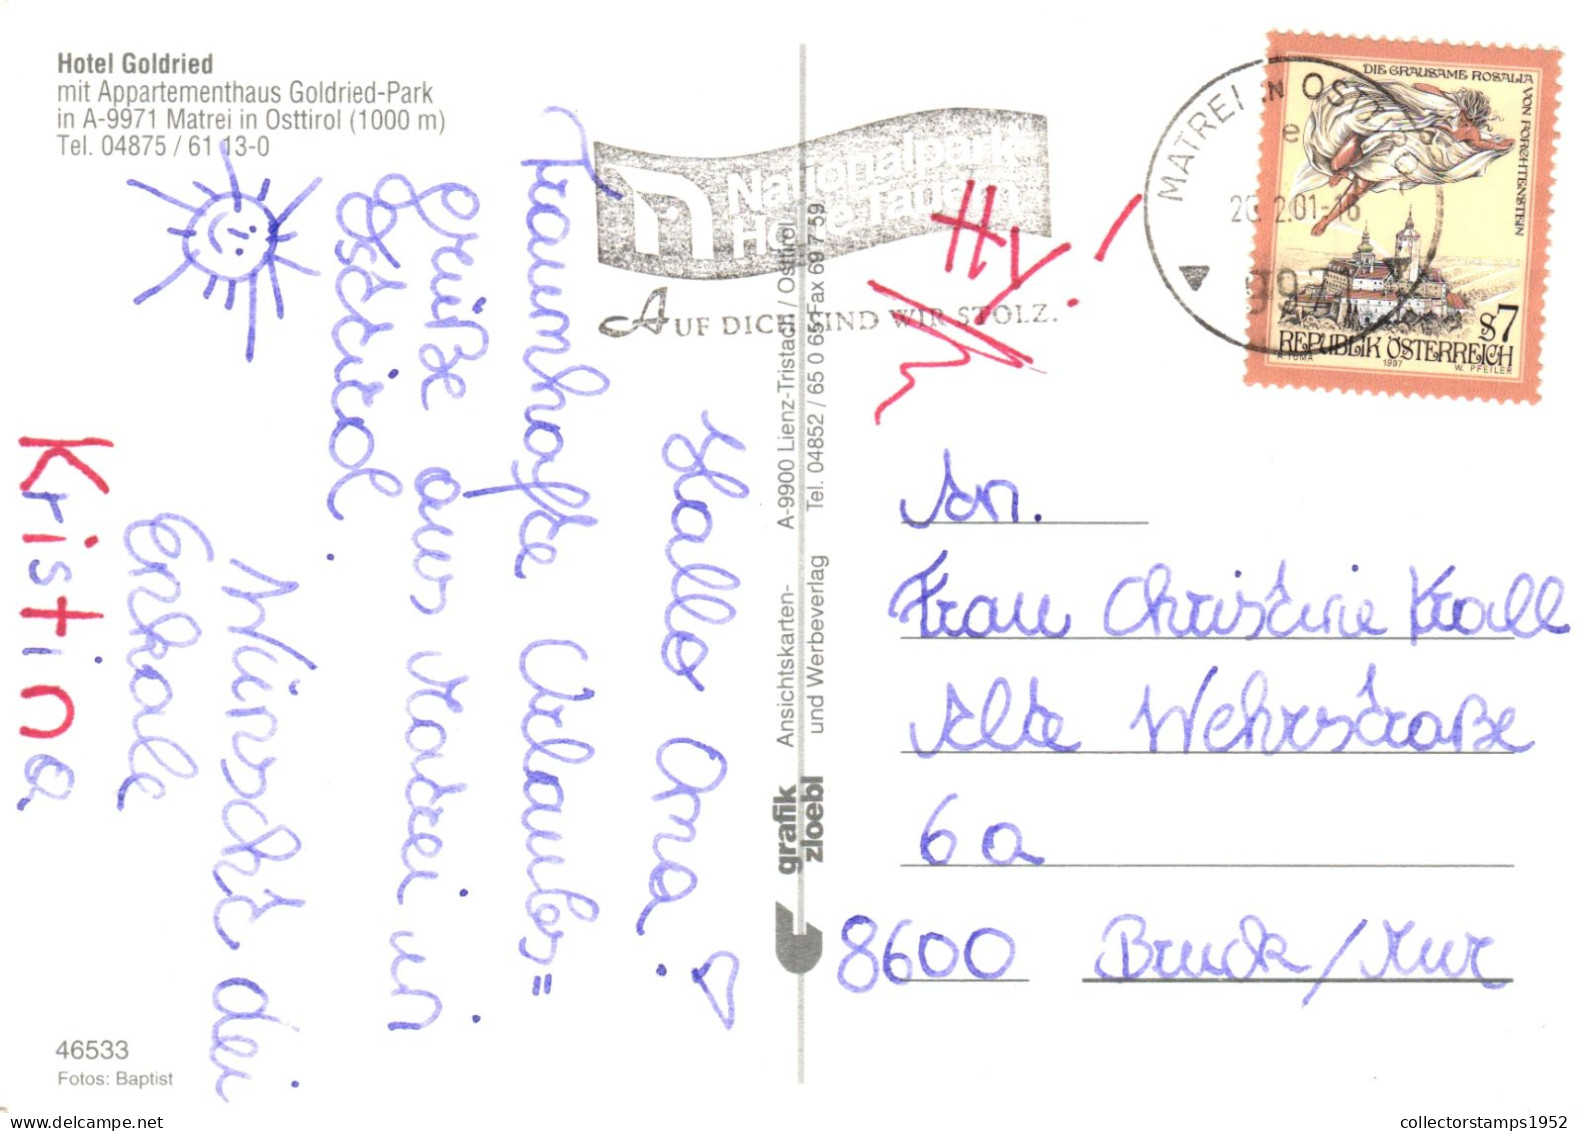 Hotel Goldried
mit Appartementhaus Goldried-Park
in A-9971 Matrei in Osttirol (1000 m)
Tel. 04875 / 61 13-0
Hallo Oma!
Traumhafte Urlaubs=
grüße aus Matrei in
Osttirol.
Wünscht dei
Enkale
Kristina
46533
Fotos: Baptist
grafik
zloebl
Ansichtskarten-
und Werbeverlag
A-9900 Lienz-Tristach / Osttirol
Tel. 04852 / 65 0 65, Fax 69 7 59
Nationalpark
Hohe Tauern
AUF DICH SIND WIR STOLZ.
Hy!
MATREI IN OST
e
2.01-16
DIE GRAUSAME ROSALIA VON FORCHTENSTEIN
S7
REPUBLIK ÖSTERREICH
A. TUMA
1997
W. PFEILER
An.
Frau Christine Krall
Alte Wehrstraße
6a
8600 Bruck/Mur
collectorstamps1952